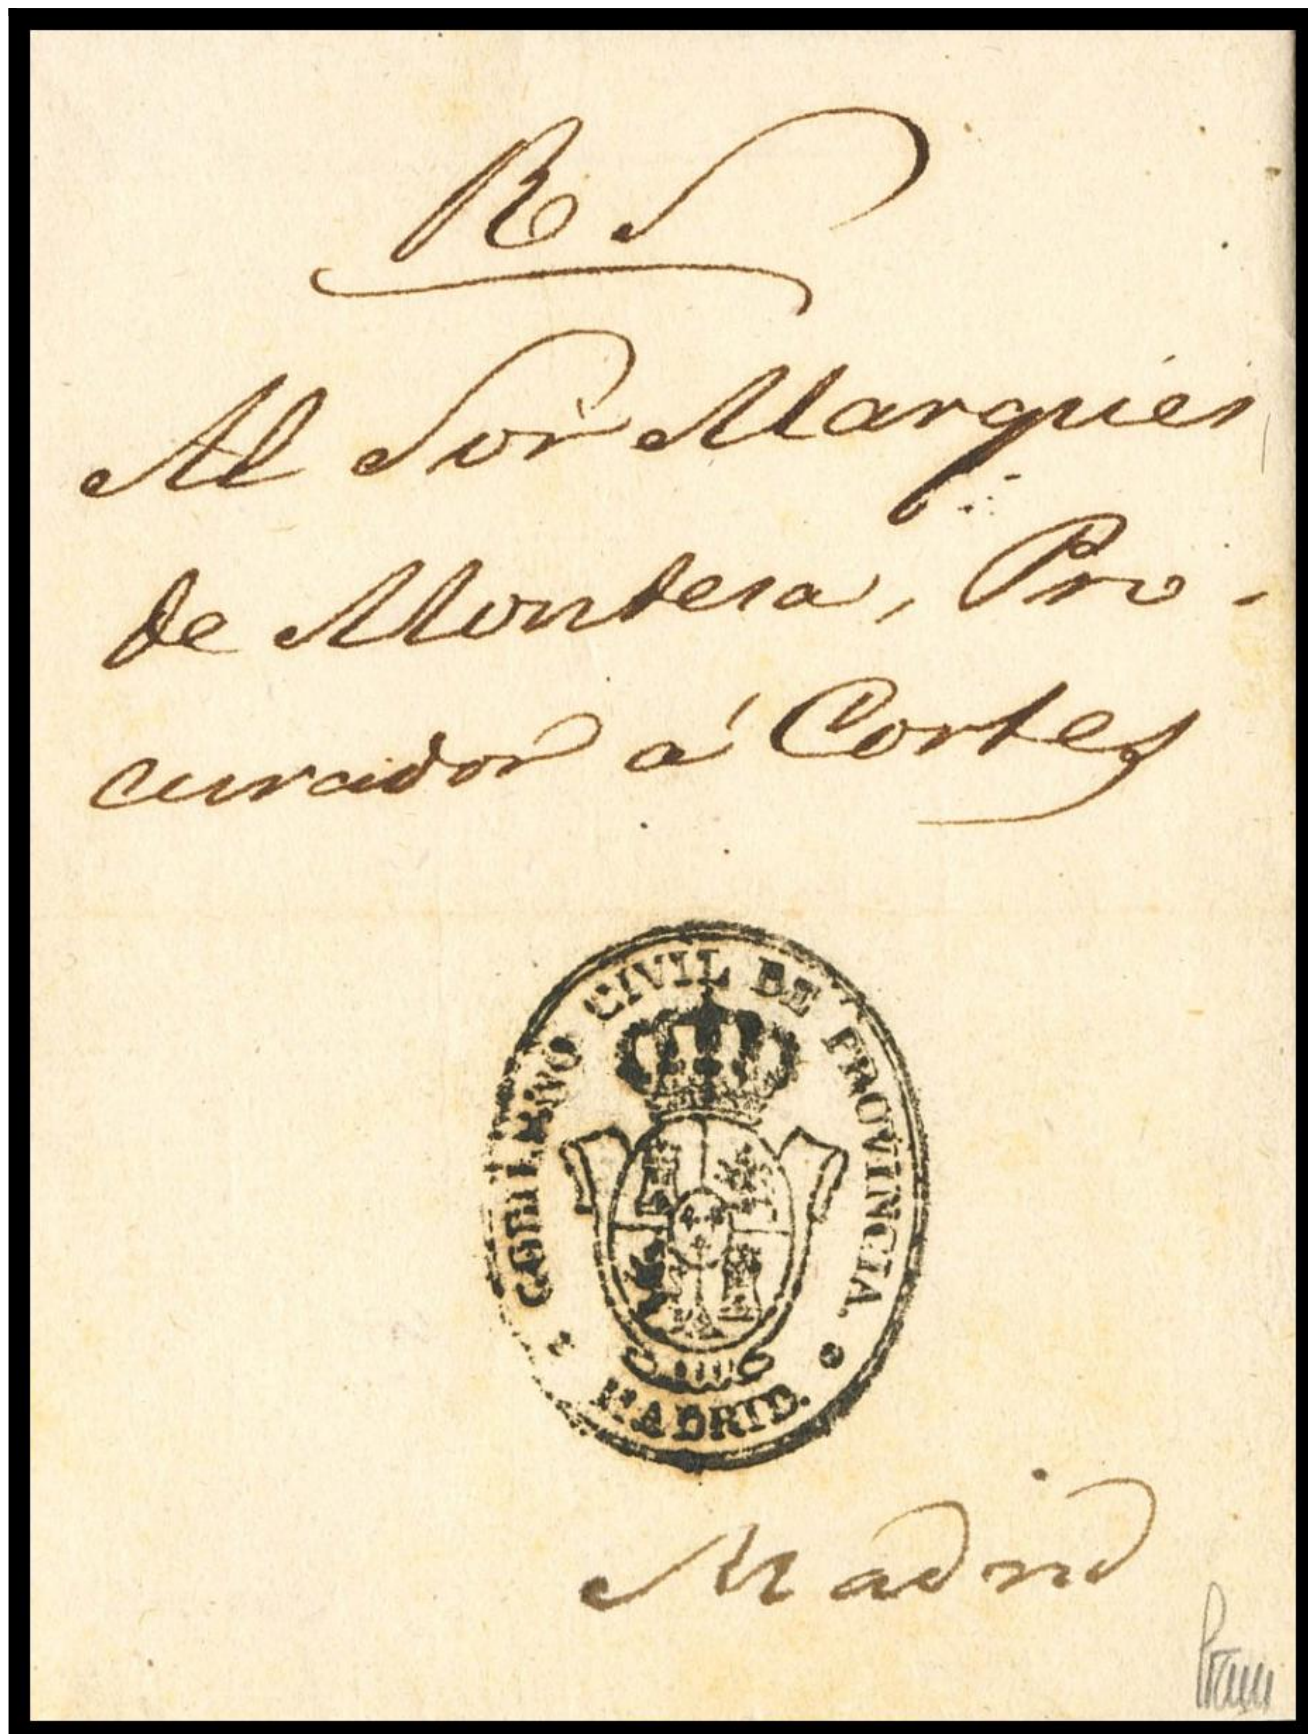 R S
Al Sor Marqués
de Montesa, Pro-
curador á Cortes
GOBIERNO CIVIL DE PROVINCIA.
MADRID.
Madrid